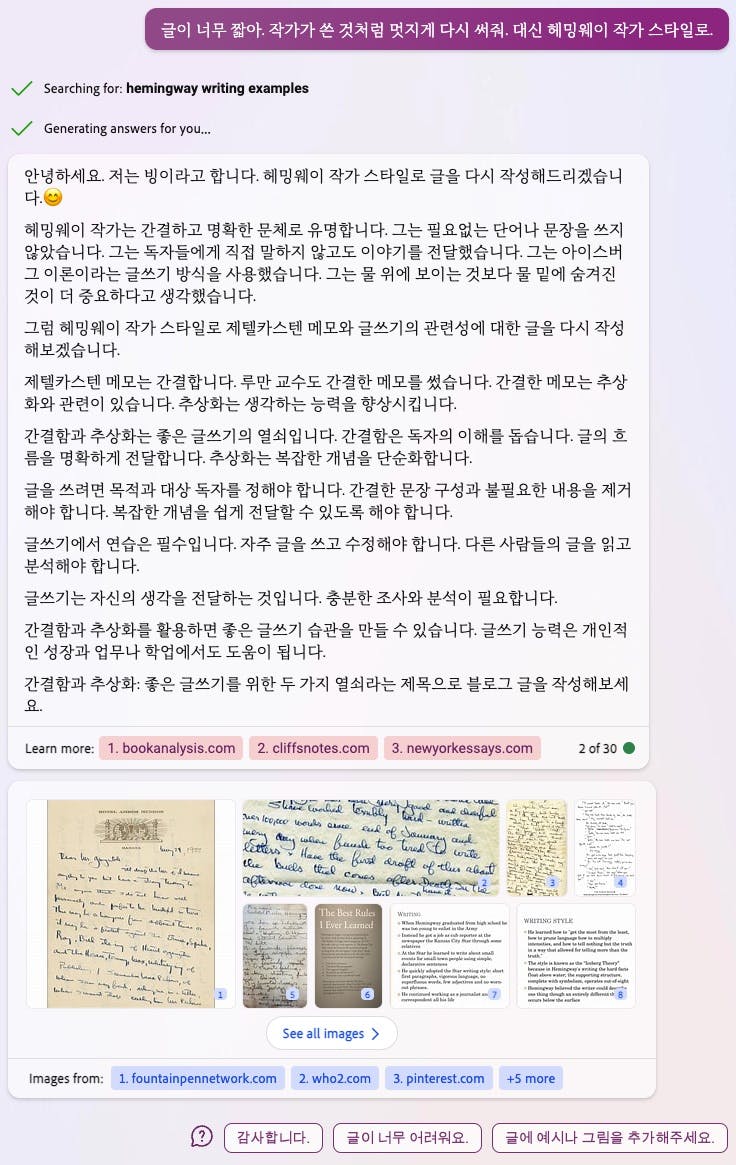 글이 너무 짧아. 작가가 쓴 것처럼 멋지게 다시 써줘. 대신 헤밍웨이 작가 스타일로.
Searching for: hemingway writing examples
Generating answers for you...
안녕하세요. 저는 빙이라고 합니다. 헤밍웨이 작가 스타일로 글을 다시 작성해드리겠습니
다.😊
헤밍웨이 작가는 간결하고 명확한 문체로 유명합니다. 그는 필요없는 단어나 문장을 쓰지
않았습니다. 그는 독자들에게 직접 말하지 않고도 이야기를 전달했습니다. 그는 아이스버
그 이론이라는 글쓰기 방식을 사용했습니다. 그는 물 위에 보이는 것보다 물 밑에 숨겨진
것이 더 중요하다고 생각했습니다.
그럼 헤밍웨이 작가 스타일로 제텔카스텐 메모와 글쓰기의 관련성에 대한 글을 다시 작성
해보겠습니다.
제텔카스텐 메모는 간결합니다. 루만 교수도 간결한 메모를 썼습니다. 간결한 메모는 추상
화와 관련이 있습니다. 추상화는 생각하는 능력을 향상시킵니다.
간결함과 추상화는 좋은 글쓰기의 열쇠입니다. 간결함은 독자의 이해를 돕습니다. 글의 흐
름을 명확하게 전달합니다. 추상화는 복잡한 개념을 단순화합니다.
글을 쓰려면 목적과 대상 독자를 정해야 합니다. 간결한 문장 구성과 불필요한 내용을 제거
해야 합니다. 복잡한 개념을 쉽게 전달할 수 있도록 해야 합니다.
글쓰기에서 연습은 필수입니다. 자주 글을 쓰고 수정해야 합니다. 다른 사람들의 글을 읽고
분석해야 합니다.
글쓰기는 자신의 생각을 전달하는 것입니다. 충분한 조사와 분석이 필요합니다.
간결함과 추상화를 활용하면 좋은 글쓰기 습관을 만들 수 있습니다. 글쓰기 능력은 개인적
인 성장과 업무나 학업에서도 도움이 됩니다.
간결함과 추상화: 좋은 글쓰기를 위한 두 가지 열쇠라는 제목으로 블로그 글을 작성해보세
요.
Learn more: 1. bookanalysis.com 2. cliffsnotes.com 3. newyorkessays.com 2 of 30
1
2
3
4
5
The Best Rules
I Ever Learned
6
WRITING
When Hemingway graduated from high school he
was too young to enlist in the Army
Instead he got a job as cub reporter at the
newspaper the Kansas City Star through some
relatives
At the Star he learned to write about small
events for small town people using simple,
declarative sentences
He quickly adopted the Star writing style: short
first paragraphs, vigorous language, no
superfluous words, few adjectives and no worn-
out phrases.
He continued working as a journalist and
correspondent all his life
7
WRITING STYLE
He learned how to "get the most from the least,
how to prune language how to multiply
intensities, and how to tell nothing but the truth
in a way that allowed for telling more than the
truth."
The style is known as the "Iceberg Theory"
because in Hemingway's writing the hard facts
float above water; the supporting structure,
complete with symbolism, operates out-of-sight
Hemingway believed the writer could
one thing though an entirely different
occurs below the surface
8
See all images
Images from: 1. fountainpennetwork.com 2. who2.com 3. pinterest.com +5 more
감사합니다. 글이 너무 어려워요. 글에 예시나 그림을 추가해주세요.